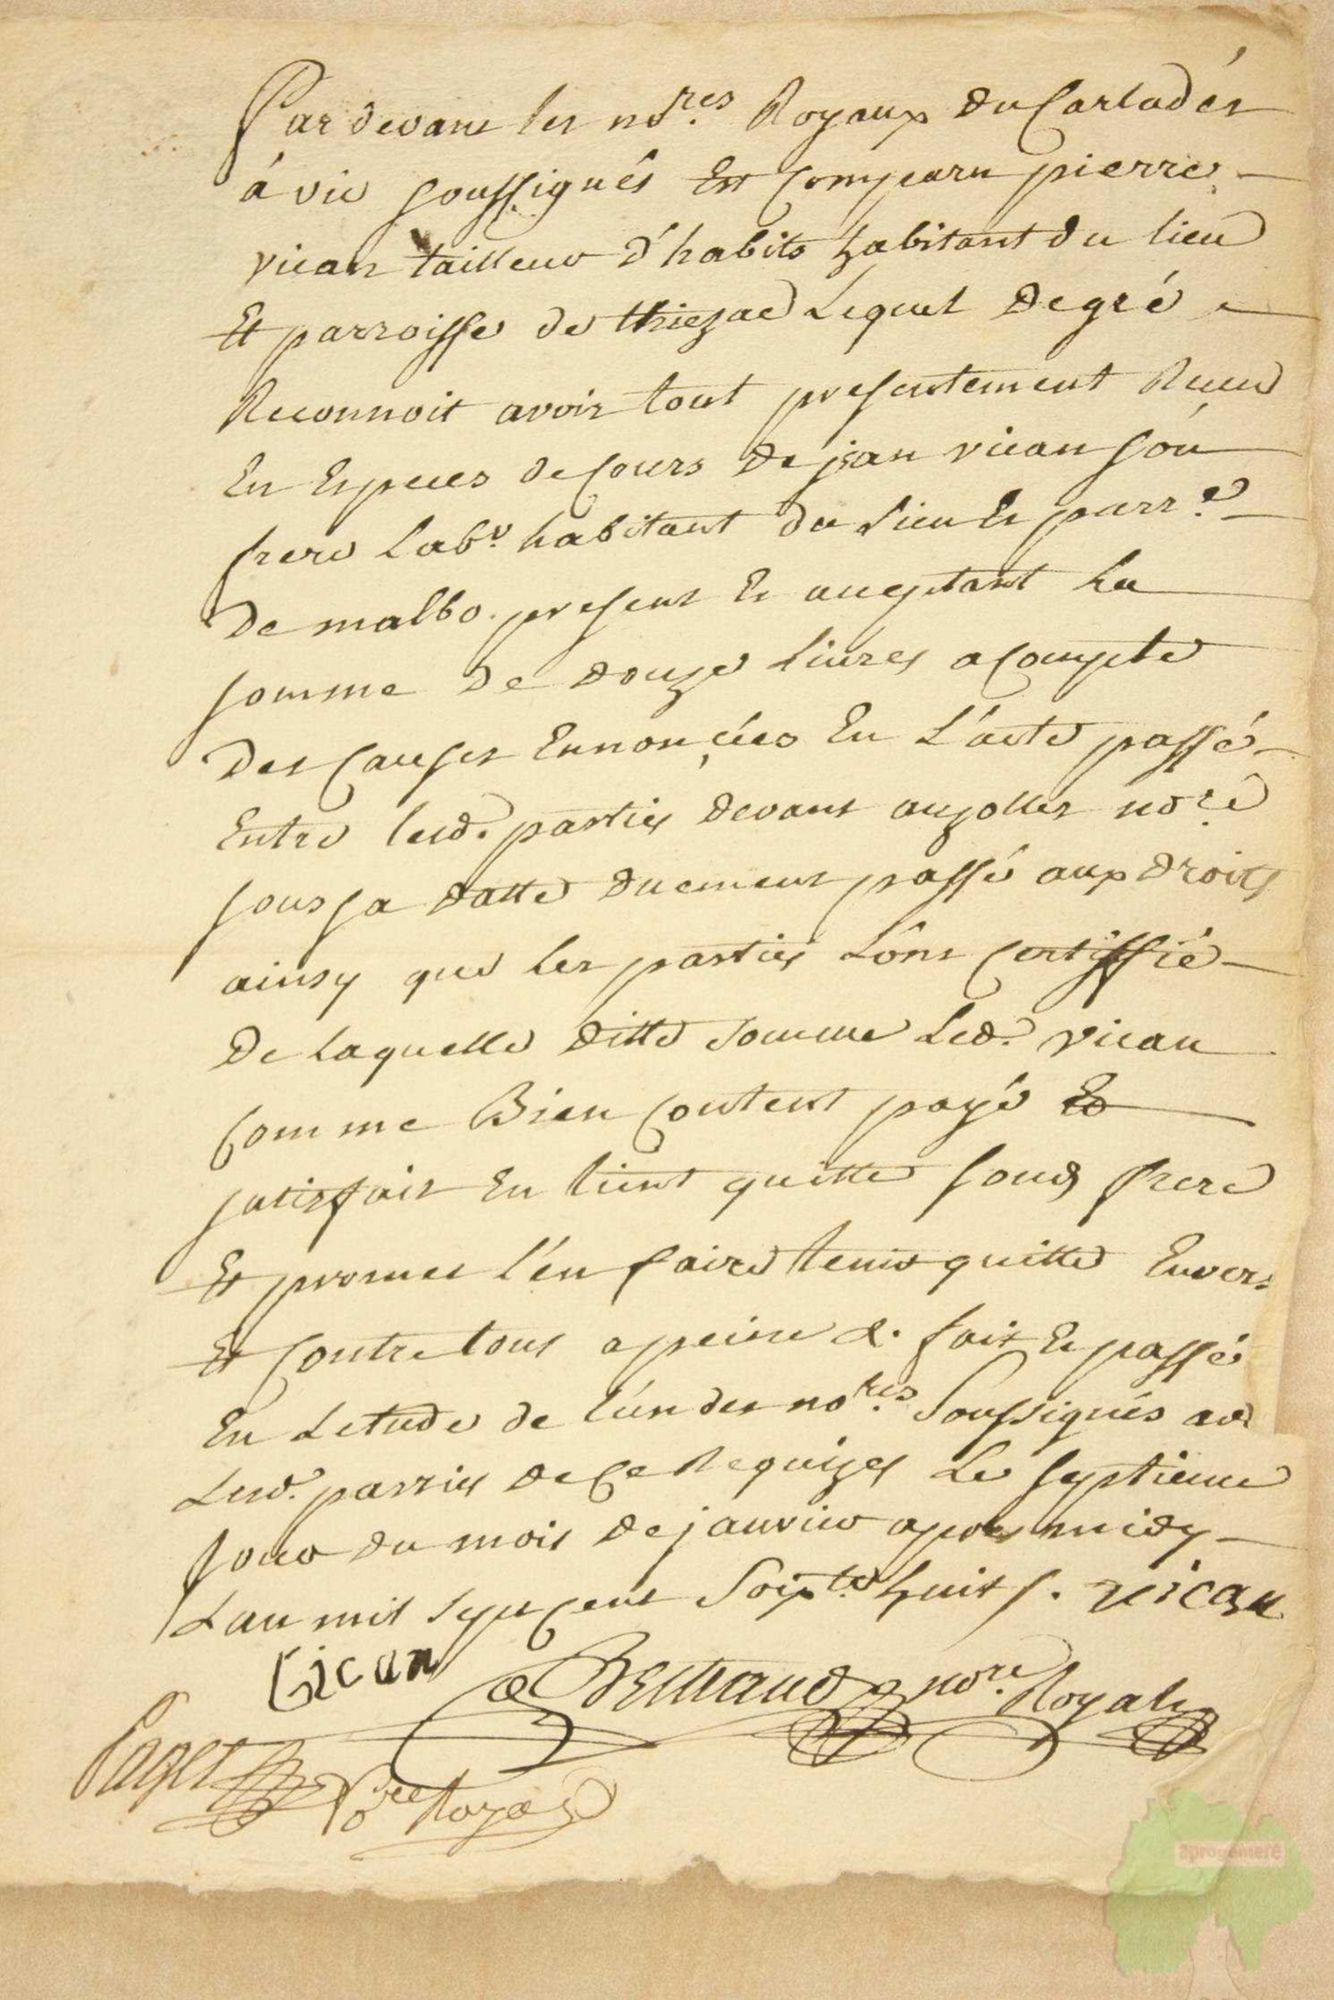 Par devant les no.res Royaux du Carladés
à vic soussignés Est comparu pierre
vican tailleur d'habits habitant du lieu
Et parroisse de thiezac Lequel de gré
Reconnoit avoir tout presentement Receu
En Especes de Cours de jean vican son
frere Lab.r habitant du Lieu Et parr.e
De malbo present Et acceptant La
somme de douze Livres a Compte
Des Causes Ennoncées En L'acte passé
Entre lesd. parties devant aujolles no.re
sous sa datte duement passé aux droits
ainsy que les parties L'ônt Certiffié
De Laquelle ditte somme Led. vican
Comme Bien Content payé Et
satisfait En tient quitte sond frere
Et promet l'en faire tenir quitte Envers
Et Contre tous a peine &. fait Et passé
En Letude de l'un des no.res Soussignés av
Lesd. parties de Ce Requizes Le septieme
Jour du mois de janvier apres midy
L'an mil sept Cent Soixte huit /. vican
Vican Bertrand no.re Royal
Pages Nore Royal
aprogemere